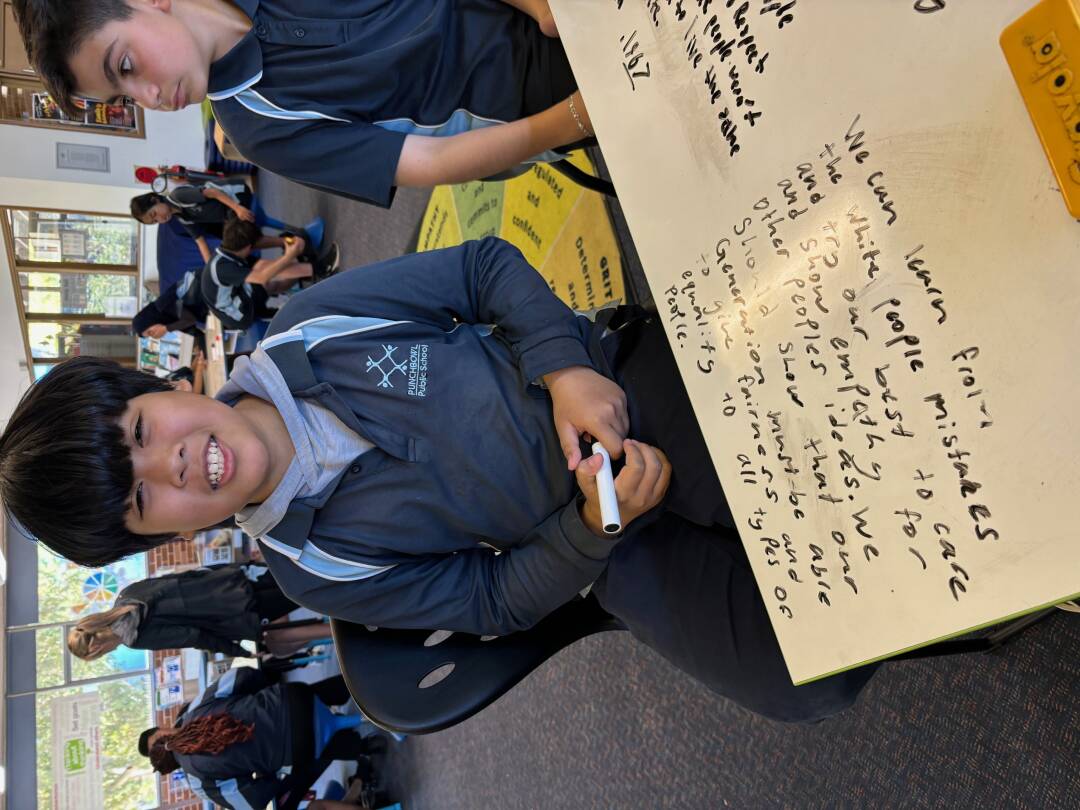 respect
people won't
live the same
1967
We can learn from
the white people mistakes
and try our best to care
and show empathy for
Other peoples ideas. We
Should show that our
Generation must be able
to give fairness and
equality to all types of
people.
PUNCHBOWL
Public School
commits to
and
confident
GRIT